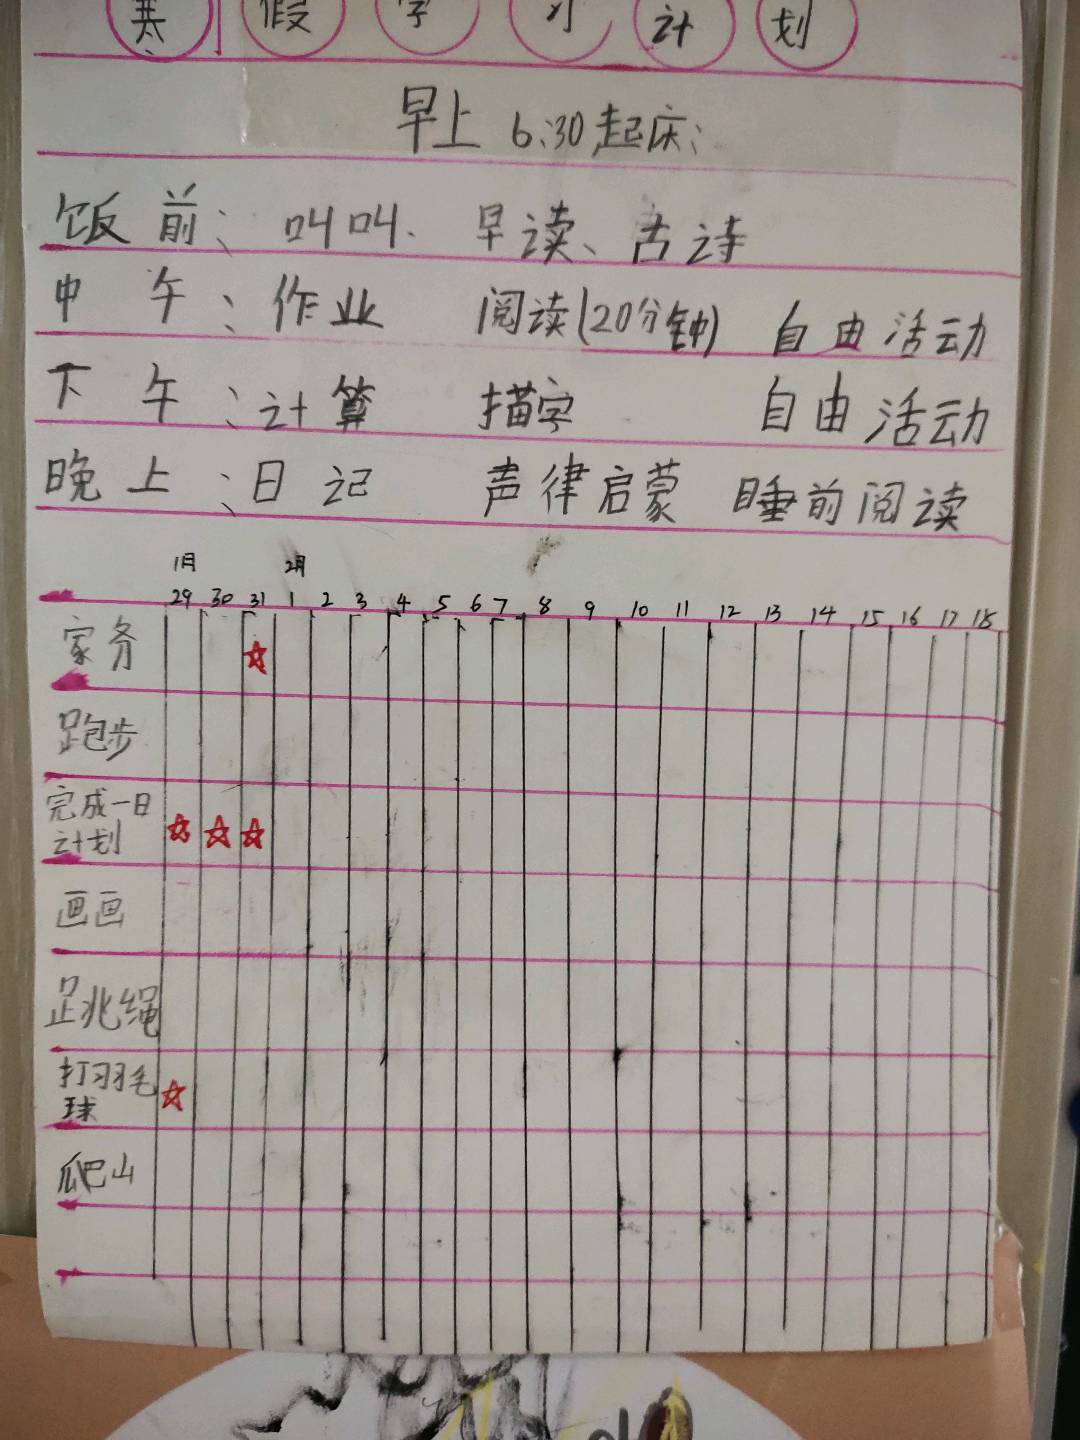 寒假学习计划
早上 6:30起床:
饭前: 叫叫、 早读、古诗
中午: 作业 阅读(20分钟) 自由活动
下午: 计算 描字 自由活动
晚上: 日记 声律启蒙 睡前阅读
1月 2月
29 30 31 1 2 3 4 5 6 7 8 9 10 11 12 13 14 15 16 17 18
家务
跑步
完成一日
计划
画画
跳绳
打羽毛
球
爬山